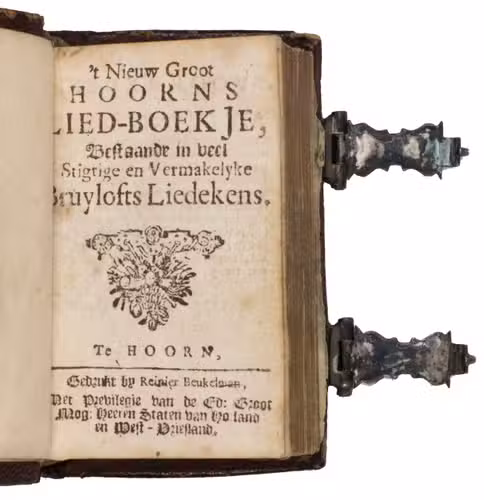 't Nieuw Groot
HOORNS
LIED-BOEKJE,
Bestaande in veel
Stigtige en Vermakelyke
Bruylofts Liedekens.
Te HOORN,
Gedrukt by Reinier Beukelman,
Met Previlegie van de Ed: Groot
Mog: Heeren Staten van Holland
en West-Vriesland.